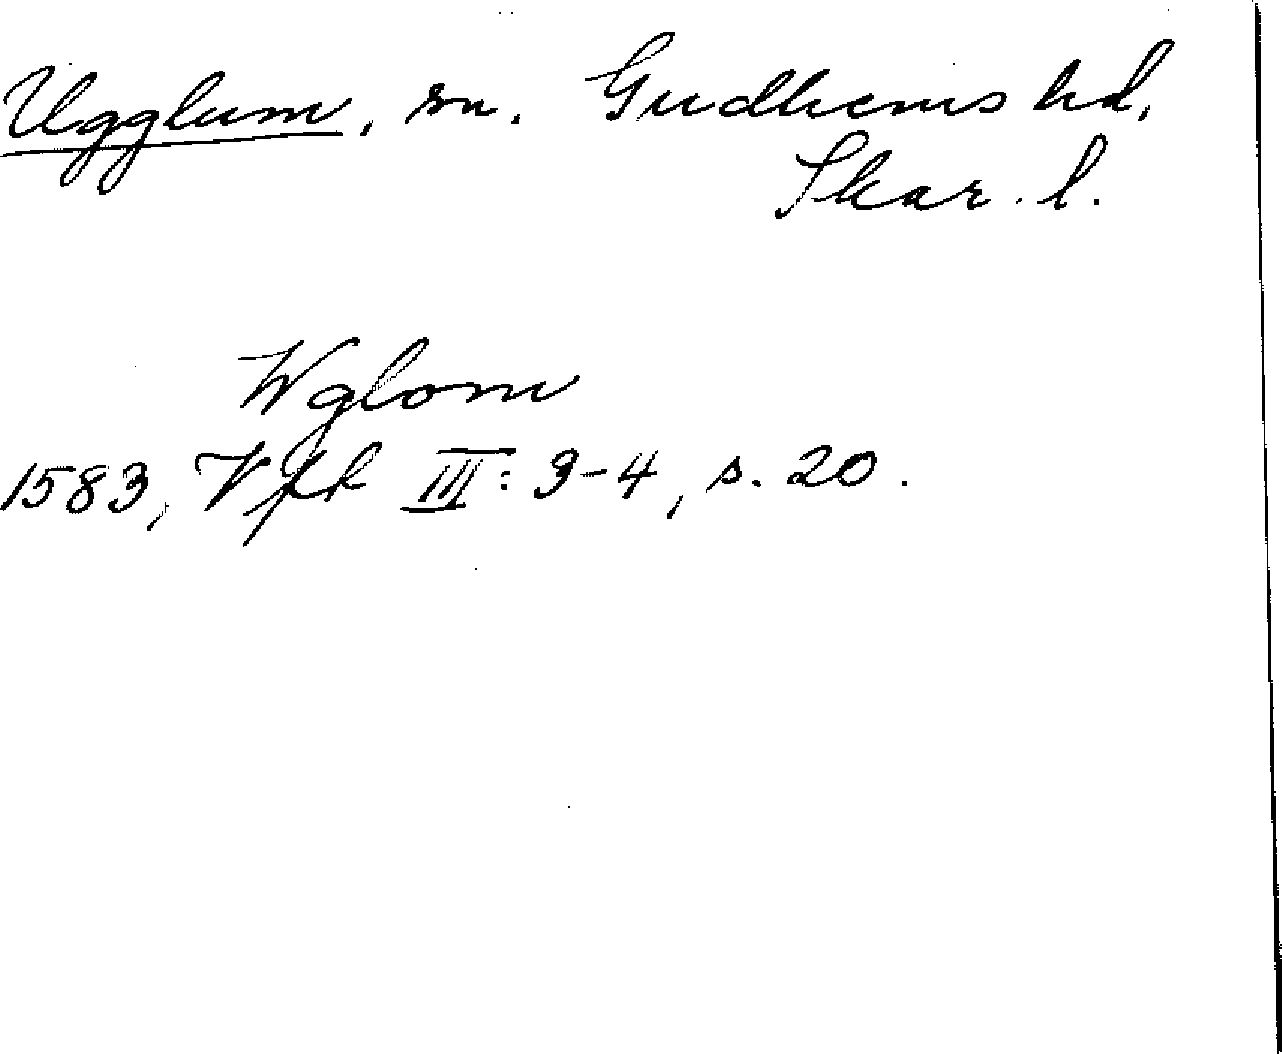 Ugglum, sn. Gudhems hd,
Skar. l.
Wglom
1583, Vfk III: 3-4, s. 20.